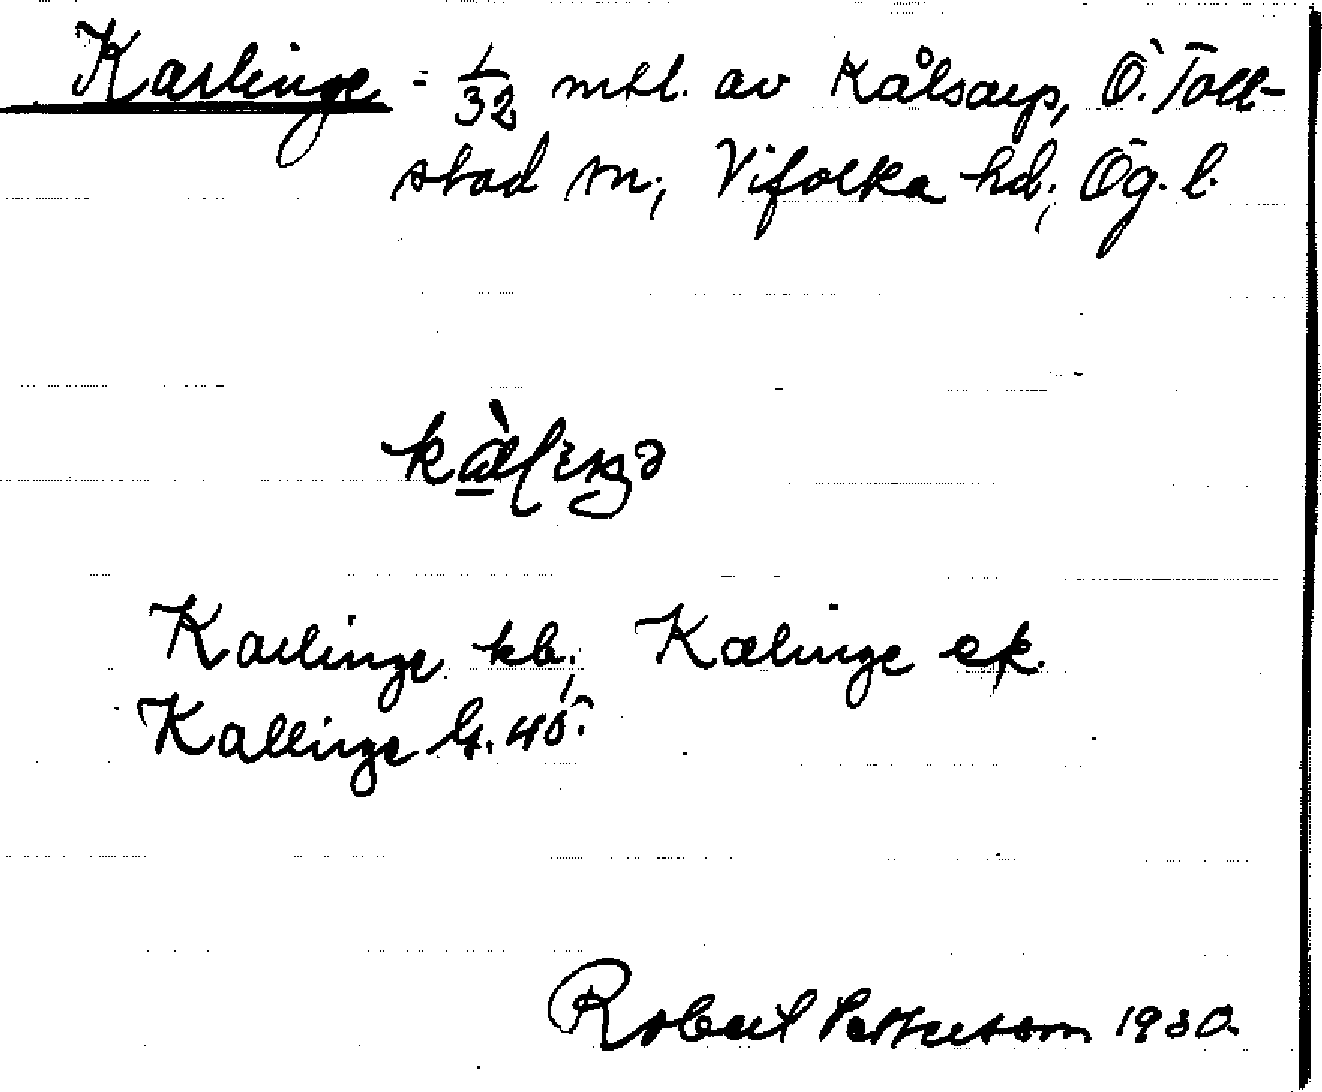 Karlinge - 1/32 mtl. av Kålsarp, Ö. Toll-
stad sn, Vifolka hd, Ög. l.
Karlinge kb, Kalinge ek.
Kallinge
Robert Pettersson 1930.